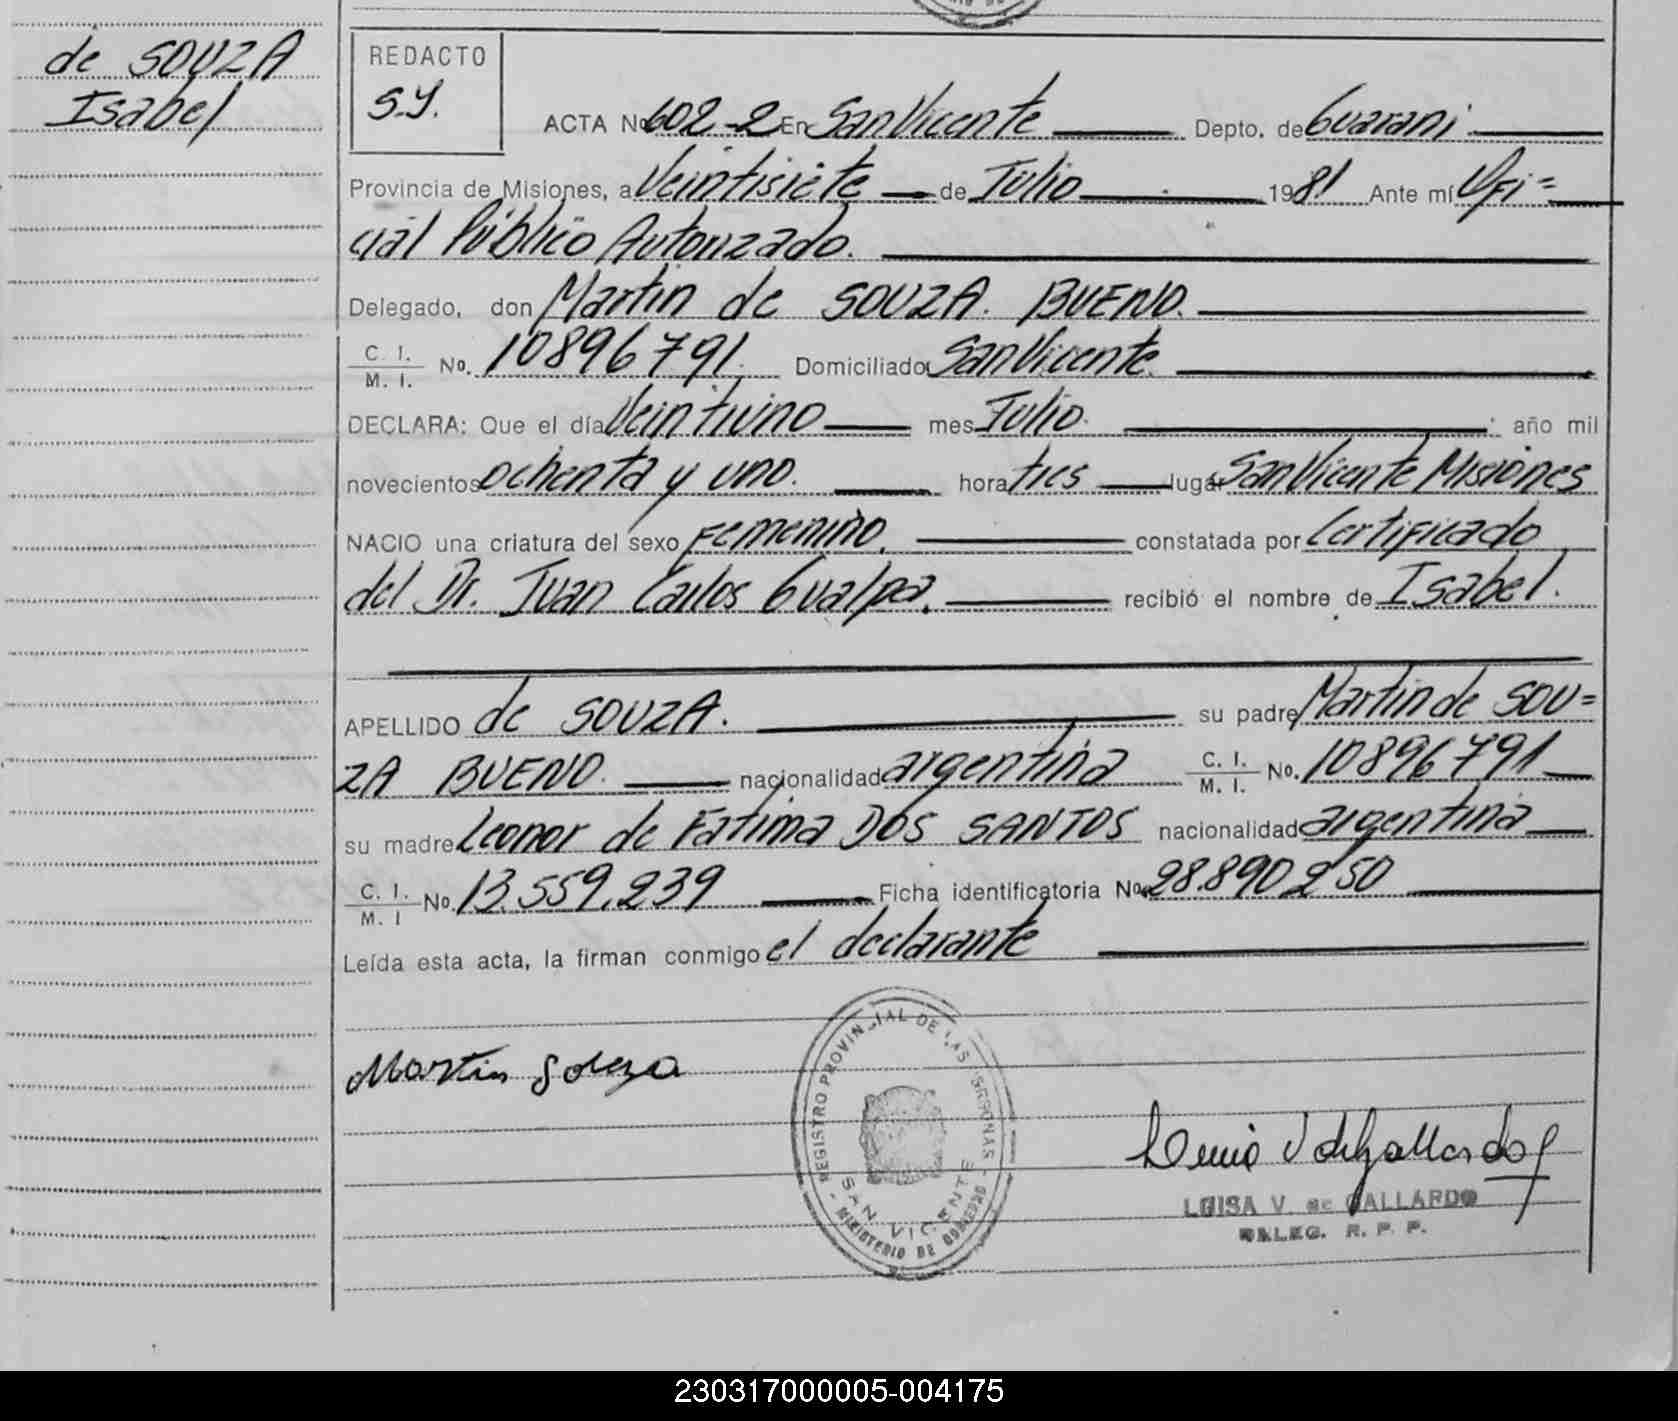 de SOUZA
Isabel
REDACTO
S.Y.
ACTA No 602-2 En San Vicente Depto. de Guarani
Provincia de Misiones, a Veintisiete de Julio 1981 Ante mí Ofi=
cial Público Autorizado.
Delegado, don Martin de SOUZA BUENO.
C. I. / M. I. No. 10896791. Domiciliado San Vicente.
DECLARA: Que el día Veintiuno mes Julio. año mil
novecientos ochenta y uno. hora tres lugar San Vicente Misiones
NACIO una criatura del sexo Femenino. constatada por Certificado
del Dr. Juan Carlos Gualpa. recibió el nombre de Isabel.
APELLIDO de SOUZA. su padre Martin de SOU=
ZA BUENO. nacionalidad argentina C. I. / M. I. No. 10896791
su madre Leonor de Fatima DOS SANTOS nacionalidad argentina
C. I. / M. I No. 13.559.239 Ficha identificatoria No. 28.890250
Leída esta acta, la firman conmigo el declarante
Martin Souza
REGISTRO PROVINCIAL DE LAS PERSONAS
SAN VICENTE
MINISTERIO DE GOBIERNO
LUISA V. de GALLARDO
DELEG. R. P. P.
230317000005-004175